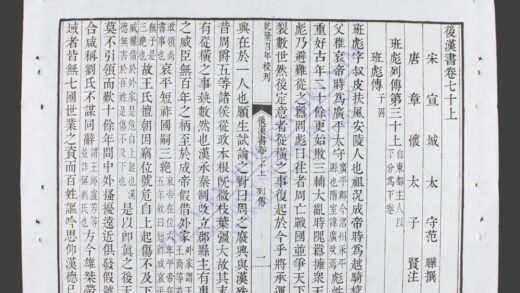 後漢書卷七十上
宋宣城太守范曄撰
唐章懷太子賢注
班彪列傳第三十上 自東都主人以下分爲下卷
班彪傳 子固
班彪字叔皮扶風安陵人也祖況成帝時爲越騎校
父稚哀帝時爲廣平太守 廣平郡今洺州 彪性
重好古年二十餘更始敗三輔大亂時隗囂擁衆天
彪乃避難從之囂問彪曰往者周亡戰國並爭天下
裂數世然後定意者從橫之事復起於今乎將承運
乾隆四年校刊 後漢書卷七十上 列傳 一
興在於一人也願生試論之對曰周之廢興與漢殊
昔周爵五等諸侯從政本根旣微枝葉彊大故其末
有從橫之事埶數然也漢承秦制改立郡縣主有專
之威臣無百年之柄至於成帝假借外家
哀平短祚國嗣三絕
三絕也 故王氏擅朝因竊位號危自上起傷不及下
威權借於外家是危自上起也漢德無害於百姓是傷不及下也 是以卽眞之後天
莫不引領而歎十餘年間中外搔擾遠近俱發假號
合咸稱劉氏不謀同辭 方今雄桀帶
域者皆無七國世業之資而百姓謳吟思仰漢德已